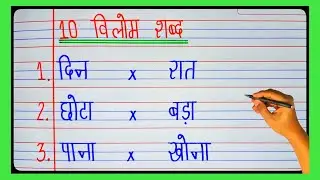 10 विलोम शब्द
1. दिन x रात
2. छोटा x बड़ा
3. पाना x खोना